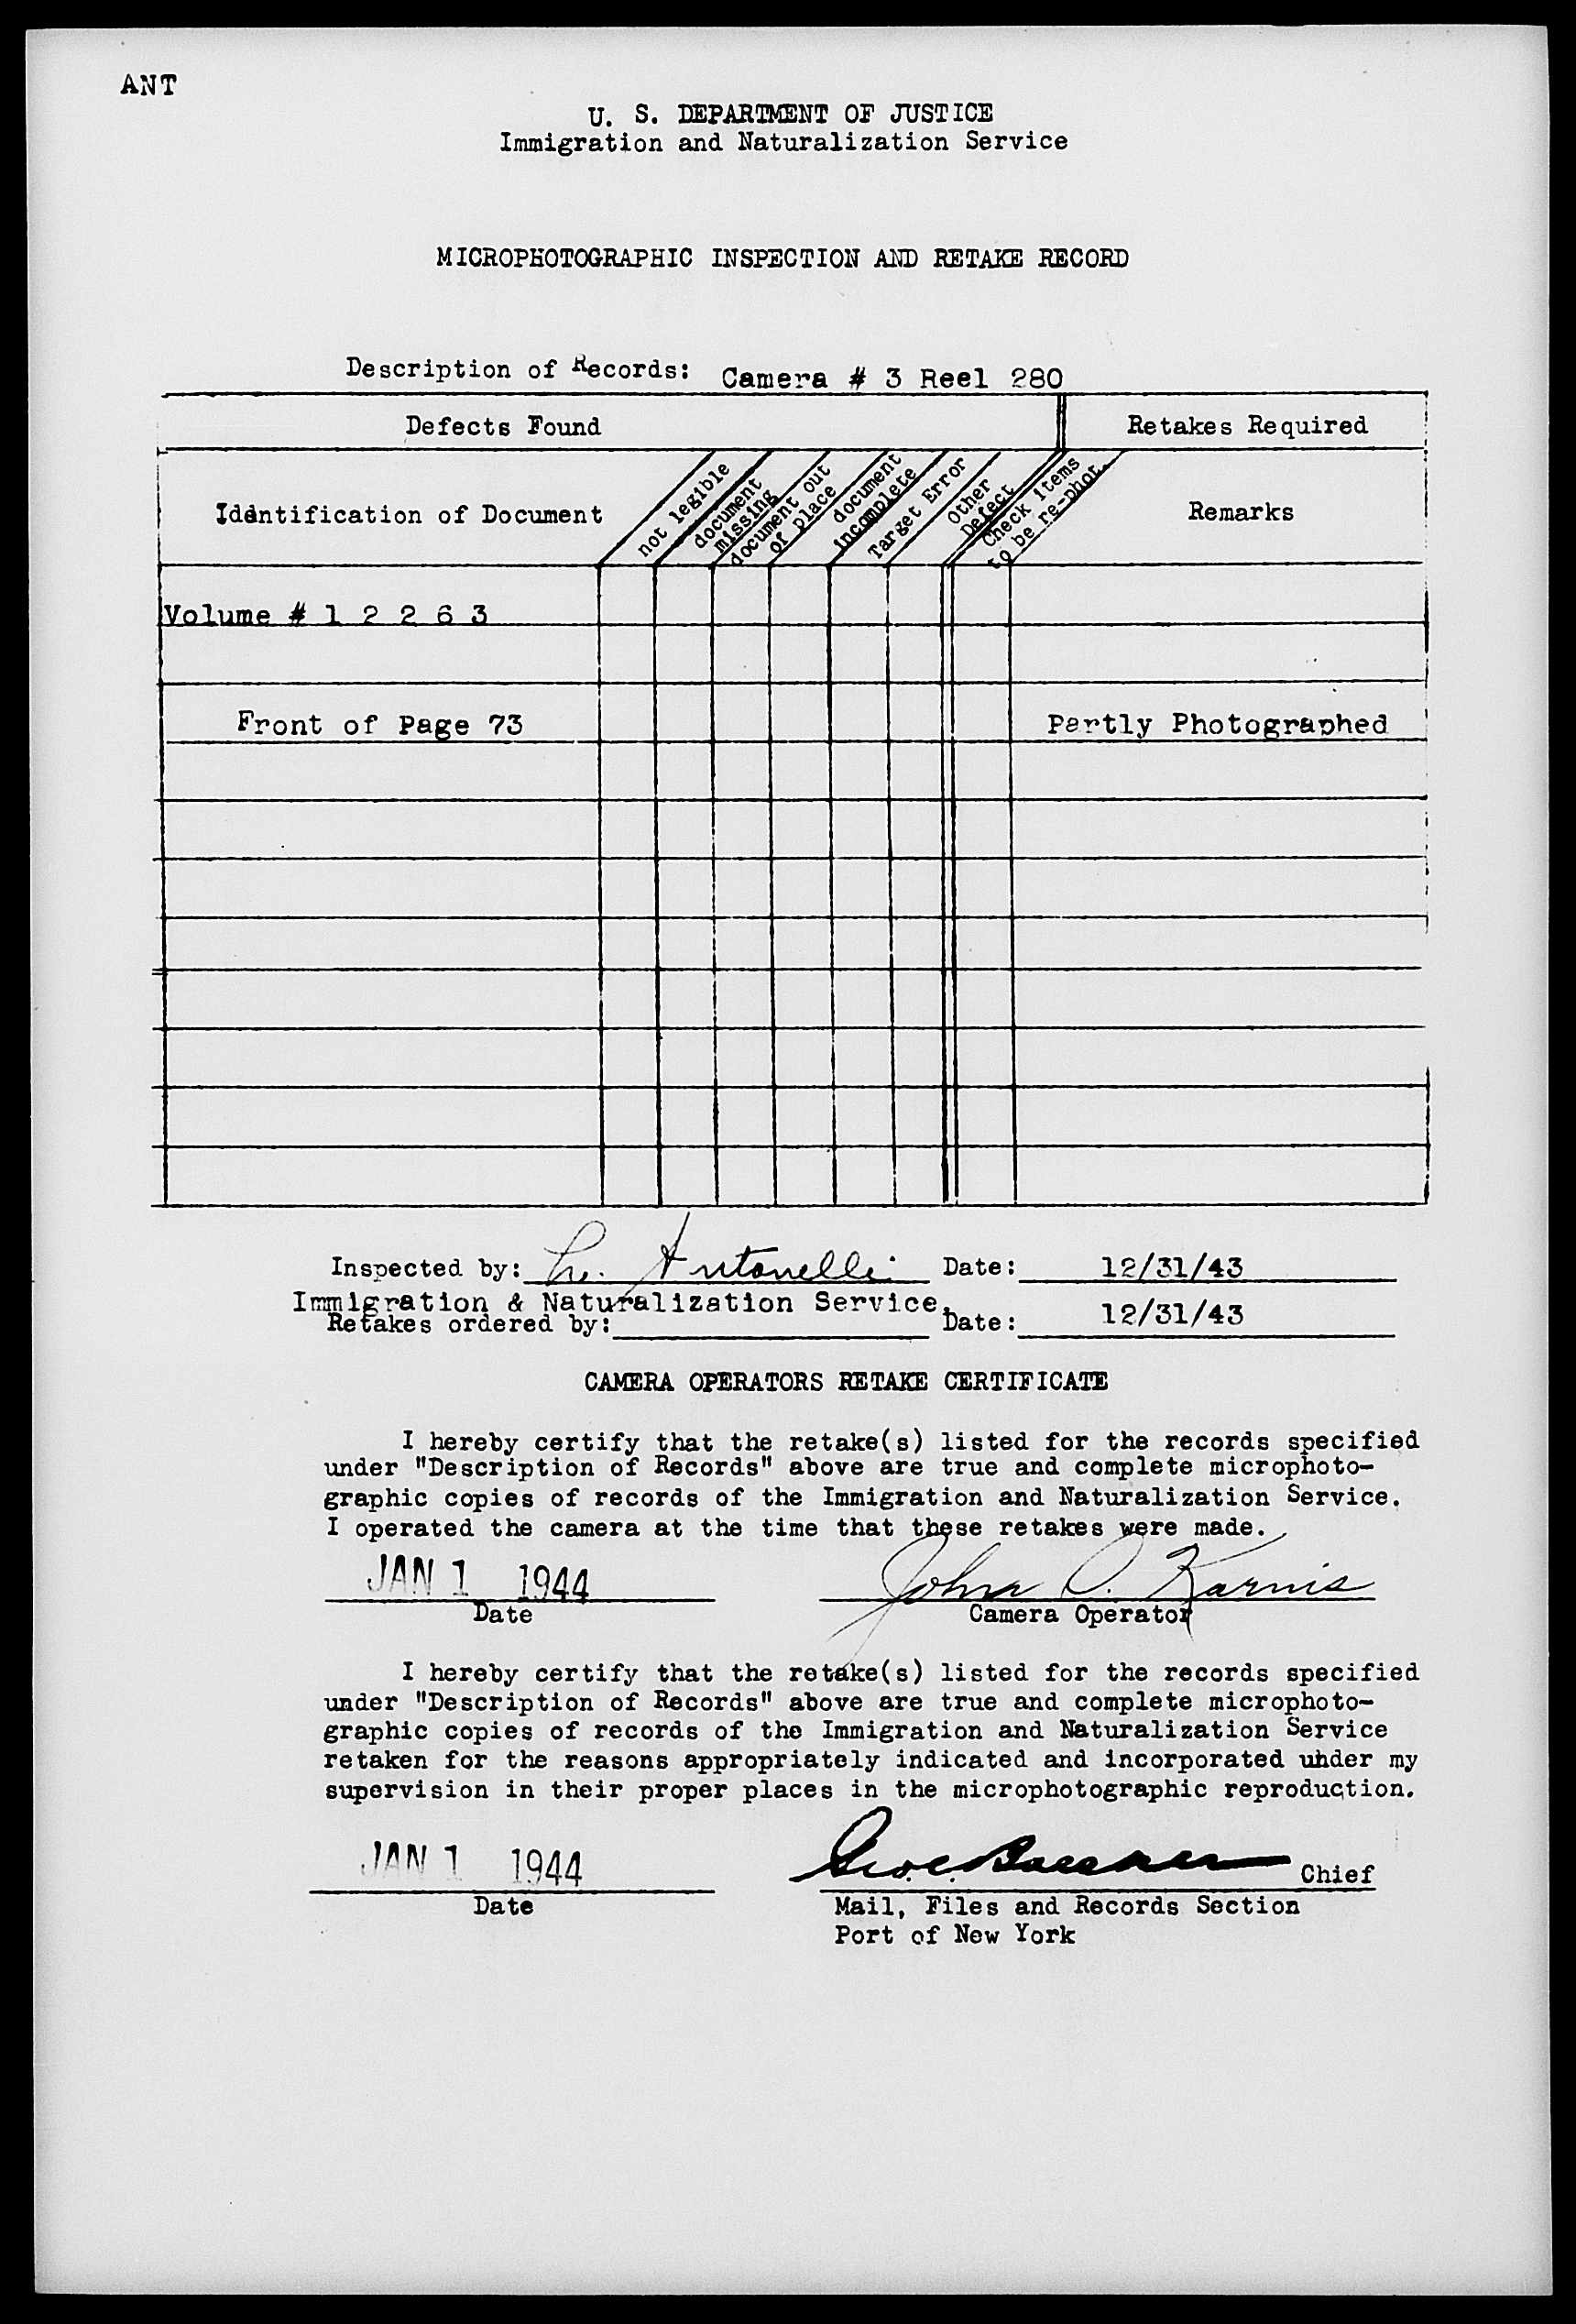 ANT
U. S. DEPARTMENT OF JUSTICE
Immigration and Naturalization Service
MICROPHOTOGRAPHIC INSPECTION AND RETAKE RECORD
Description of Records: Camera # 3 Reel 280
Defects Found
Retakes Required
Identification of Document
not legible
document missing
document out of place
document incomplete
Target Error
Other Defect
Check items to be re-phot.
Remarks
Volume # 1 2 2 6 3
Front of Page 73
Partly Photographed
Inspected by: Antonelli Date: 12/31/43
Immigration & Naturalization Service,
Retakes ordered by: Date: 12/31/43
CAMERA OPERATORS RETAKE CERTIFICATE
I hereby certify that the retake(s) listed for the records specified
under "Description of Records" above are true and complete microphoto-
graphic copies of records of the Immigration and Naturalization Service.
I operated the camera at the time that these retakes were made.
JAN 1 1944
John Karnis
Date
Camera Operator
I hereby certify that the retake(s) listed for the records specified
under "Description of Records" above are true and complete microphoto-
graphic copies of records of the Immigration and Naturalization Service
retaken for the reasons appropriately indicated and incorporated under my
supervision in their proper places in the microphotographic reproduction.
JAN 1 1944
Chief
Date
Mail, Files and Records Section
Port of New York